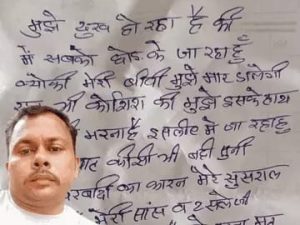 मुझे दुख हो रहा है की
में सबको छोड के जा रहा हुँ
क्योकी मेरी बीवी मुझे मार डालेगी
भी कोशिश की मुझे इसके हाथ
मरना है इसलीए में जा रहा हु
कीसी भी नही सुनी
बरबादी का कारन मेरे सुसराल
मेरी सांस व